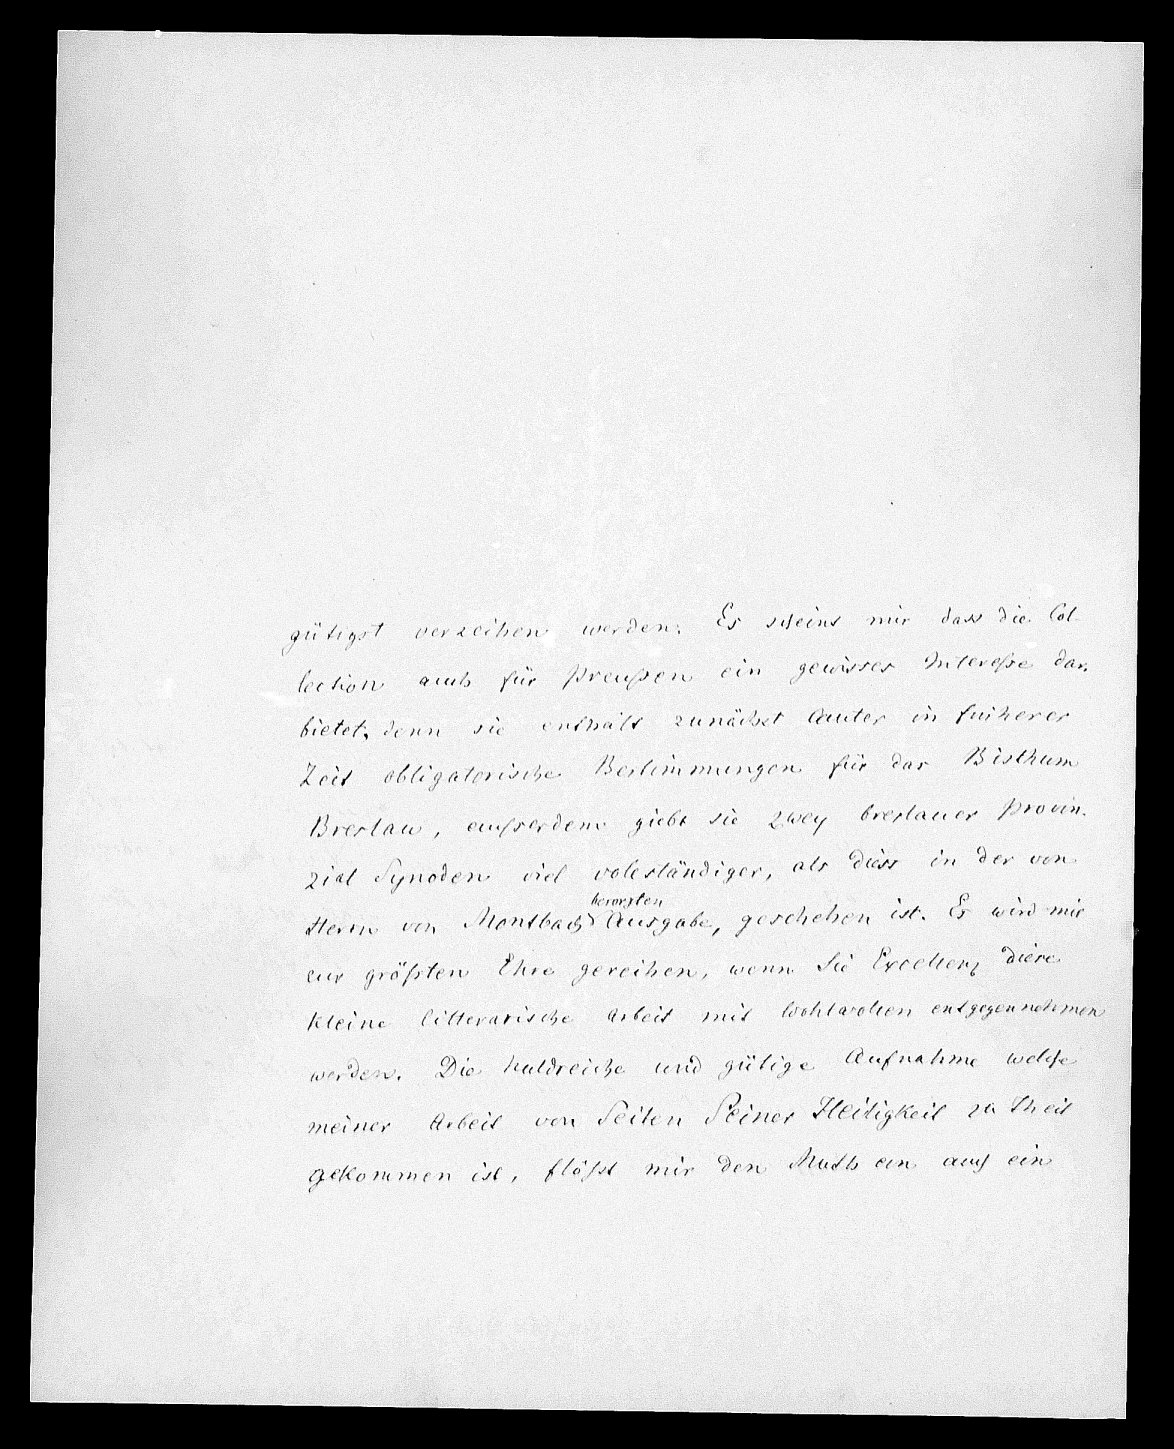 gütigst verzeihen werden. Es scheint mir dass die Col-
lection auch für Preußen ein gewisses Intereße dar-
bietet, denn sie enthält zunächst lauter in früherer
Zeit obligatorische Bestimmungen für das Bisthum
Breslau, außerdem giebt sie zwey breslauer Provin-
zial Synoden viel vollständiger, als diess in der von
Herrn von Montbach besorgten Ausgabe, geschehen ist. Es wird mir
zur größten Ehre gereichen, wenn Sie Excellenz diese
kleine litterarische Arbeit mit Wohlwollen entgegennehmen
werden. Die huldreiche und gütige Aufnahme welche
meiner Arbeit von Seiten Seiner Heiligkeit zu Theil
gekommen ist, flößt mir den Muth ein auch ein